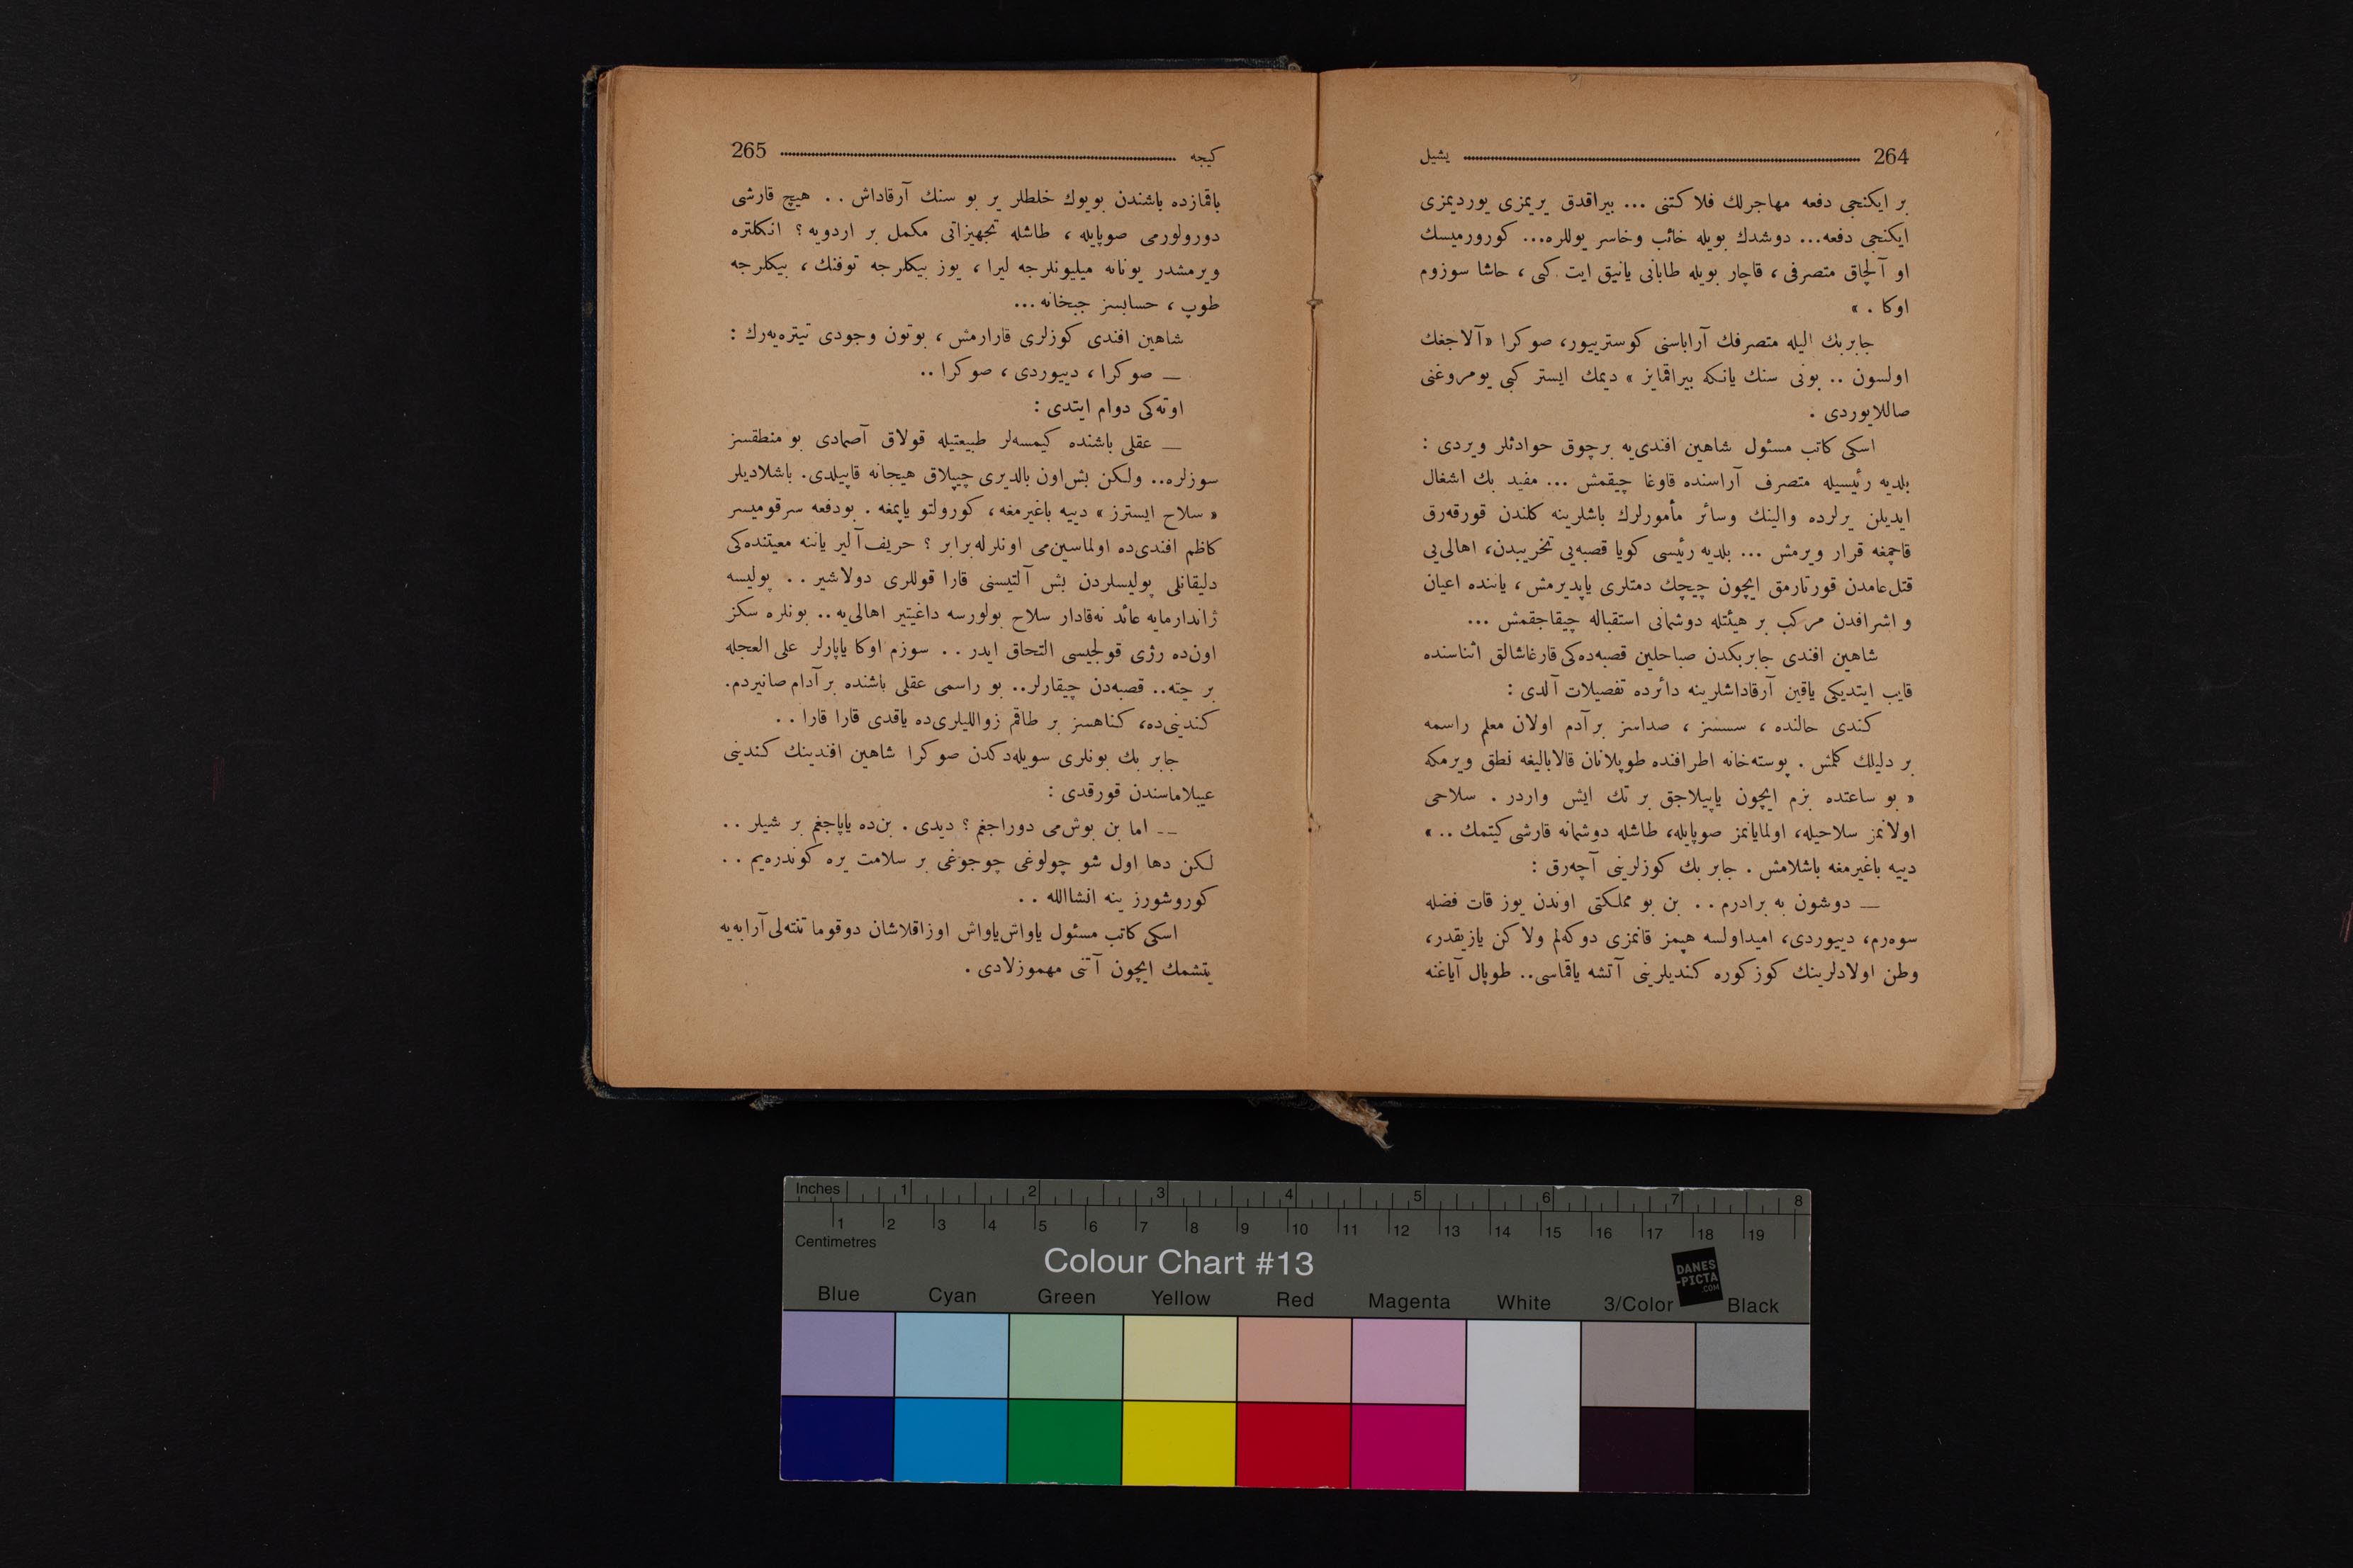 264 يشيل
بر ايكنجى دفعه مهاجرلك فلاكتنى ... بيراقدق يريمزى يورديمزى
ايكنجى دفعه... دوشدك بويله خائب وخاسر يوللره... كورورميسك
او آلچاق متصرفى ، قاچار بويله طابانى يانيق ايت كبى ، حاشا سوزوم
اوكا . »
جابربك اليله متصرفك آراباسنى كوستريیور، صوكرا «آلاجغك
اولسون .. بونى سنك يانكه بيراقمايز » ديمك ايستر كبى يومروغنى
صاللايوردى .
اسكى كاتب مسئول شاهين افندى‌يه برچوق حوادثلر ويردى :
بلديه رئيسيله متصرف آراسنده قاوغا چيقمش ... مفيد بك اشغال
ايديلن يرلرده والينك وسائر مأمورلرك باشلرينه كلندن قورقه‌رق
قاچمغه قرار ويرمش ... بلديه رئيسى كويا قصبه‌يى تخريبدن، اهالى‌يى
قتل‌عامدن قورتارمق ايچون چيچك دمتلرى ياپديرمش ، ياننده اعيان
و اشرافدن مركب بر هيئتله دوشمانى استقباله چيقاجقمش ...
شاهين افندى جابربكدن صباحلين قصبه‌ده‌كى قارغاشالق اثناسنده
قايب ايتديكى ياقين آرقاداشلرينه دائرده تفصيلات آلدى :
كندى حالنده ، سسسز ، صداسز برآدم اولان معلم راسمه
بر دليلك كلمش . پوسته‌خانه اطرافنده طوپلانان قالاباليغه نطق ويرمكه
« بو ساعتده بزم ايچون ياپيلاجق بر تك ايش واردر . سلاحى
اولانمز سلاحيله، اولمايانمز صوپايله، طاشله دوشمانه قارشى كيتمك .. »
دييه باغيرمغه باشلامش . جابر بك كوزلرينى آچه‌رق :
— دوشون به برادرم .. بن بو مملكتى اوندن يوز قات فضله
سوه‌رم، دييوردى، اميداولسه هپمز قانمزى دوكه‌لم ولاكن يازيقدر،
وطن اولادلرينك كوزكوره كنديلرينى آتشه ياقماسى.. طوپال آياغنه
كيجه 265
باقمازده باشندن بويوك خلطلر ير بو سنك آرقاداش .. هيچ قارشى
دورولورمى صوپايله ، طاشله تجهيزاتى مكمل بر اردويه ؟ انكلتره
ويرمشدر يونانه ميليونلرجه ليرا ، يوز بيكلرجه توفنك ، بيكلرجه
طوپ ، حسابسز جبخانه ...
شاهين افندى كوزلرى قارارمش ، بوتون وجودى تيتره‌يه‌رك :
— صوكرا ، دييوردى ، صوكرا ..
اوته‌كى دوام ايتدى :
— عقلى باشنده كيمسه‌لر طبيعتيله قولاق آصمادى بو منطقسز
سوزلره.. ولكن بش‌اون بالديرى چيپلاق هيجانه قاپيلدى. باشلاديلر
« سلاح ايسترز » دييه باغيرمغه ، كورولتو ياپمغه . بودفعه سرقوميسر
كاظم افندى‌ده اولماسين‌مى اونلرله‌برابر ؟ حريف آلير ياننه معيتنده‌كى
دليقانلى پوليسلردن بش آلتيسنى قارا قوللرى دولاشير .. پوليسه
ژاندارمايه عائد نه‌قادار سلاح بولورسه داغيتير اهالى‌يه .. بونلره سكز
اون‌ده رژى قولجيسى التحاق ايدر .. سوزم اوكا ياپارلر على العجله
بر چته.. قصبه‌دن چيقارلر.. بو راسمى عقلى باشنده برآدام صانيردم.
كندينى‌ده، كناهسز بر طاقم زواللیلرى‌ده ياقدى قارا قارا ..
جابر بك بونلرى سويله‌دكدن صوكرا شاهين افندينك كندينى
عيبلاماسندن قورقدى :
— اما بن بوش‌مى دوراجغم ؟ ديدى . بن‌ده ياپاجغم بر شيلر ..
لكن دها اول شو چولوغى چوجوغى بر سلامت يره كوندره‌يم ..
كوروشورز ينه انشاالله ..
اسكى كاتب مسئول ياواش‌ياواش اوزاقلاشان دوقوما تنته‌لى آرابه‌يه
يتشمك ايچون آتنى مهموزلادى .
Inches 1 2 3 4 5 6 7 8
1 2 3 4 5 6 7 8 9 10 11 12 13 14 15 16 17 18 19
Centimetres
Colour Chart #13
DANES
-PICTA
.COM
Blue Cyan Green Yellow Red Magenta White 3/Color Black